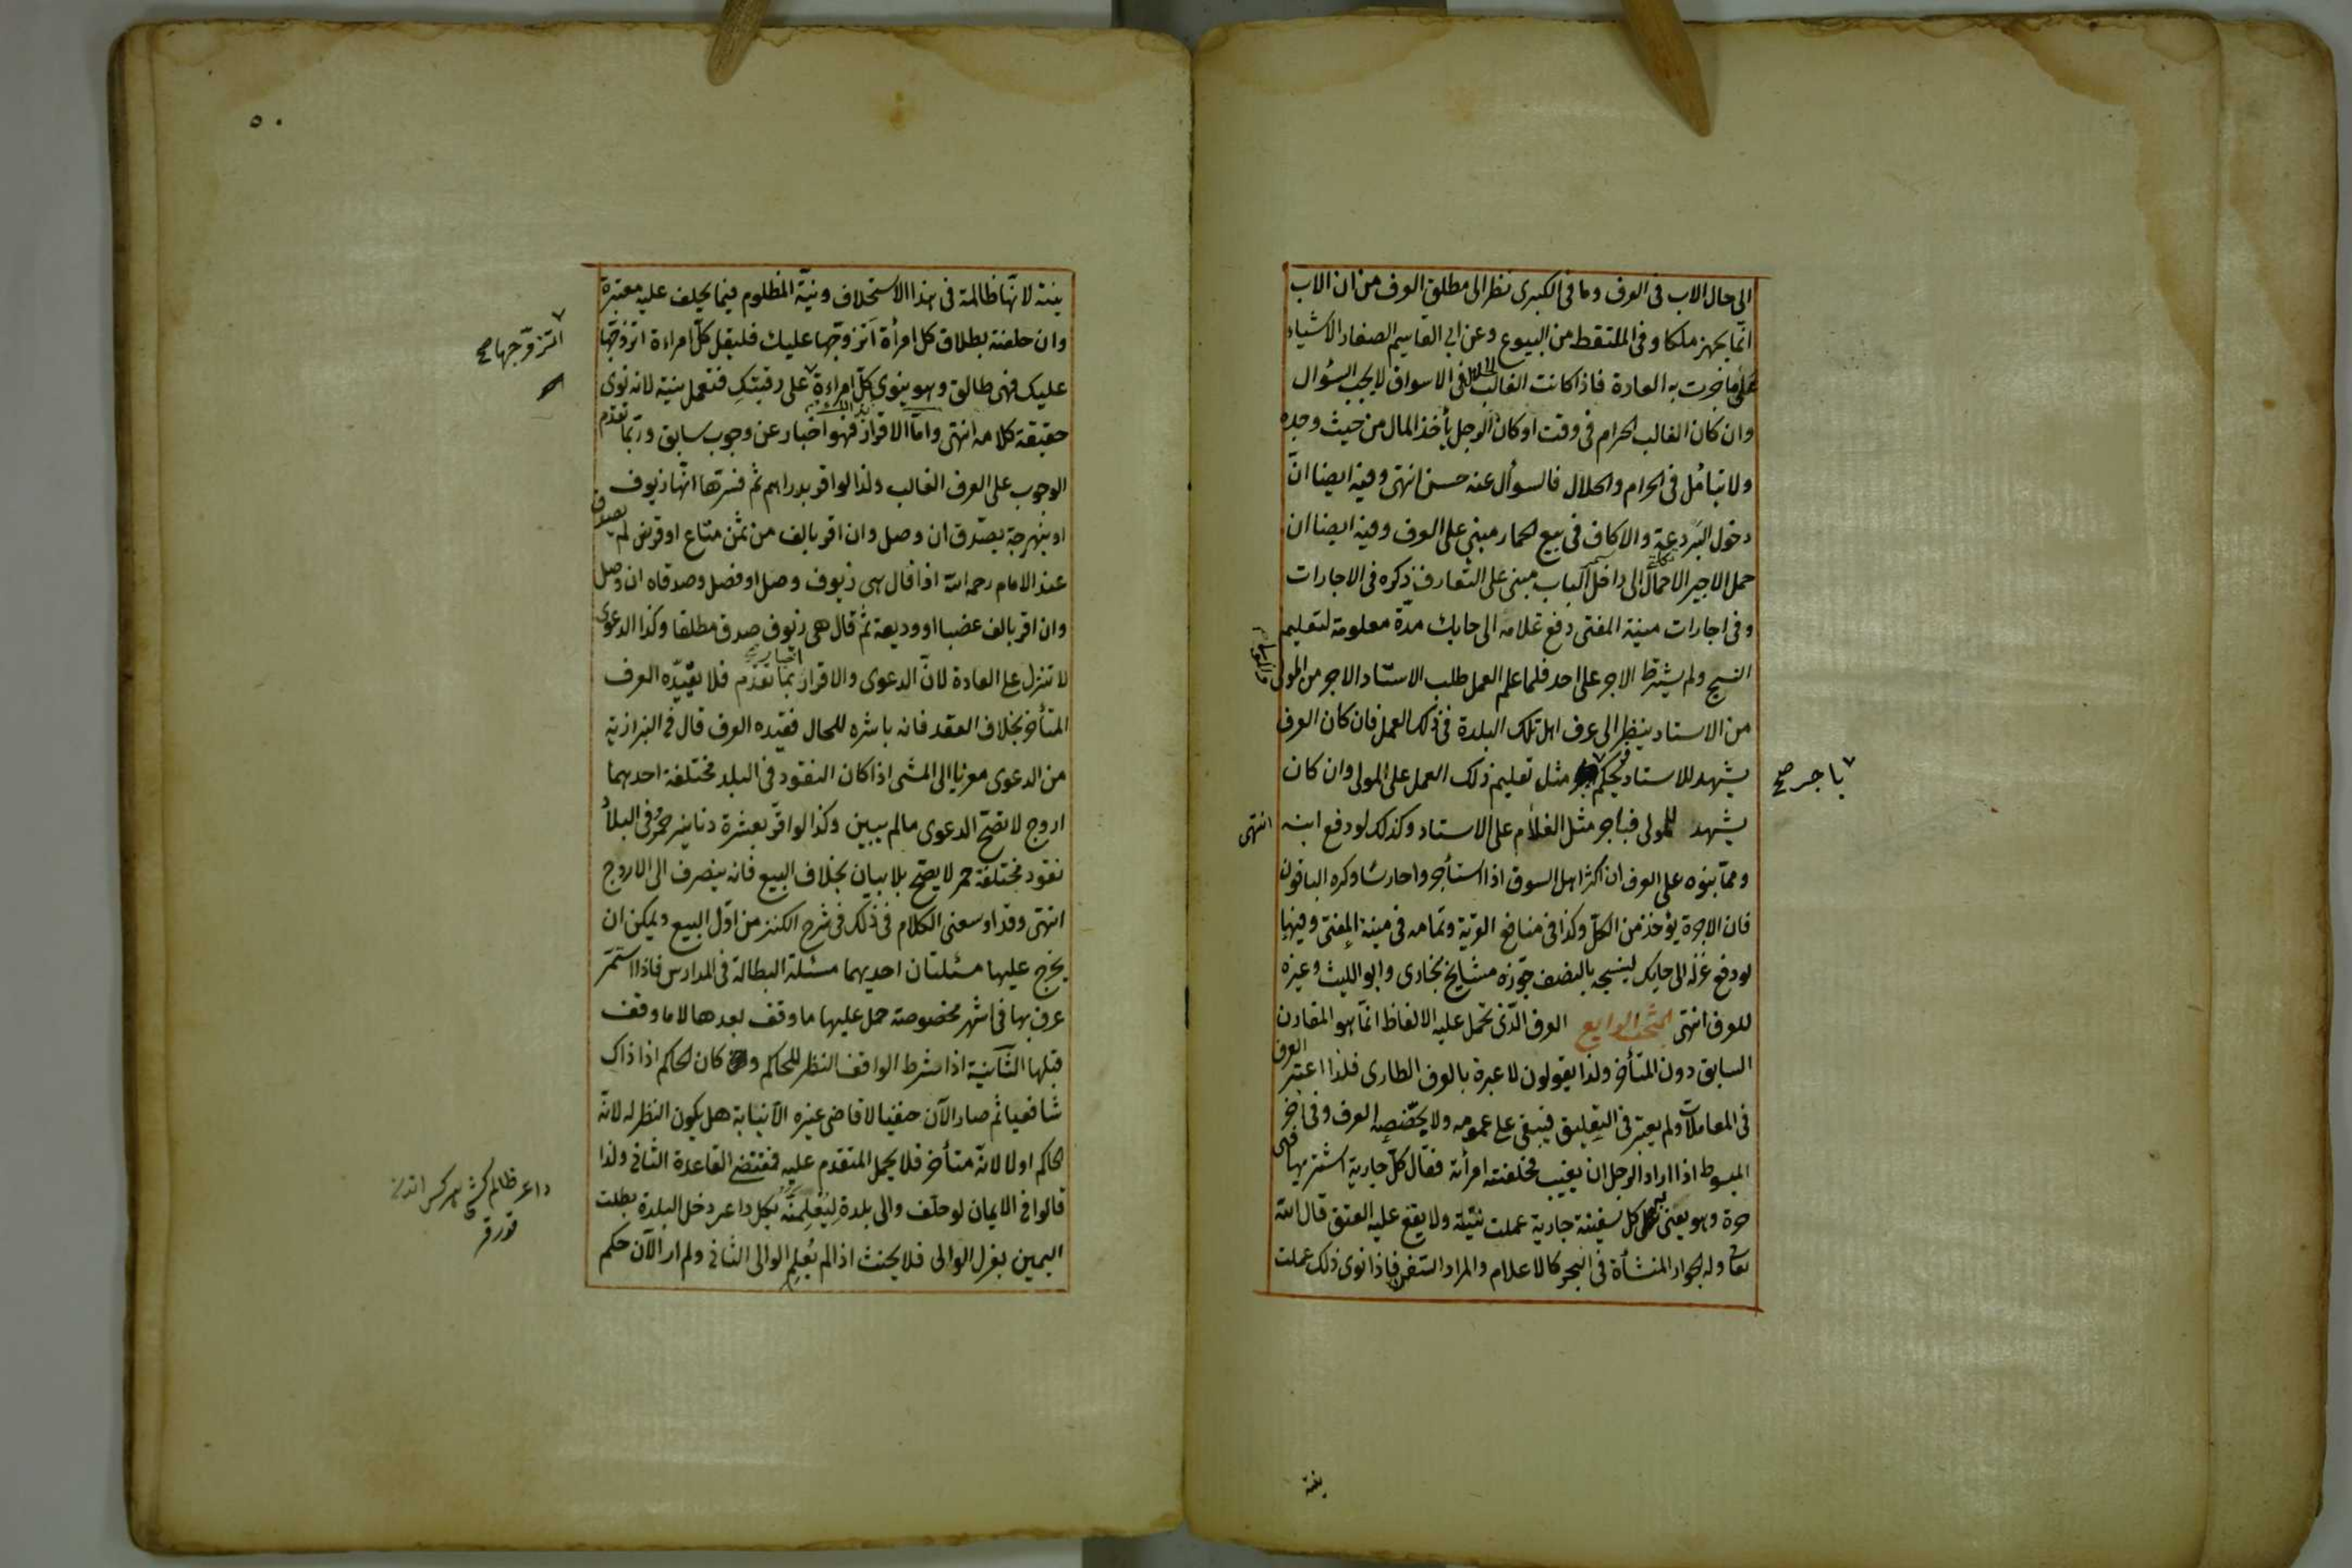 الى حال الاب فى العرف وما فى الكبرى نظر الى مطلق العرف من ان الاب
انما يجهز ملكا وفى الملتقط من البيوع وعن ابى القاسم الصفار الاشياء
على ما جرت به العادة فاذا كانت الغالب الحلال فى الاسواق لا يجب السؤال
وان كان الغالب الحرام فى وقت او كان الرجل يأخذ المال من حيث وجده
ولا يتأمل فى الحرام والحلال فالسؤال عنه حسن انتهى وفيه ايضا ان
دخول البردعة والاكاف فى بيع الحمار مبنى على العرف وفيه ايضا ان
حمل الاجير الاحمال الى داخل الباب مبنى على التعارف ذكره فى الاجارات
وفى اجارات منية المفتى دفع غلامه الى حايك مدة معلومة لتعليم
النسج ولم يشترط الاجر على احد فلما علم العمل طلب الاستاد الاجر من المولى
والمولى
من الاستاد ينظر الى عرف اهل تلك البلدة فى ذلك العمل فان كان العرف
يشهد للاستاد يحكم مثل تعليم ذلك العمل على المولى وان كان
باجر صح
يشهد للمولى فباجر مثل الغلام على الاستاد وكذلك لو دفع ابنه انتهى
ومما بنوه على العرف ان اكثر اهل السوق اذا استأجروا حارسا وكره الباقون
فان الاجرة يؤخذ من الكل وكذا فى منافع القرية وتمامه فى منية المفتى وفيها
لو دفع غزله الى حايك لينسجه بالنصف جوزه مشايخ بخارى وابو الليث وغيره
للعرف انتهى المبحث الرابع العرف الذى تحمل عليه الالفاظ انما هو المقارن
السابق دون المتأخر ولذا يقولون لا عبرة بالعرف الطارى فلذا اعتبر العرف
فى المعاملات ولم يعتبر فى التعليق فيبقى على عمومه ولا يخصصه العرف وفى اخر
المبسوط اذا اراد الرجل ان يغيب فحلفته امرأته فقال كل جارية اشتريها فهى
حرة وهو يعنى كل سفينة جارية عملت نيته ولا يقع عليه العتق قال الله
تعالى وله الجوار المنشأة فى البحر كالاعلام والمراد السفن فاذا نوى ذلك عملت
نيته
٥٠
نيته لانها ظالمة فى هذا الاستحلاف ونية المظلوم فيما يحلف عليه معتبرة
وان حلفته بطلاق كل امرأة اتزوجها عليك فليقل كل امراءة اتزوجها
اتزوجها صح
عليك فهى طالق وهو ينوى كل امراءة على رقبتك فتعمل نيته لانه نوى
حقيقة كلامه انتهى واما الاقرار فهو اخبار عن وجوب سابق وربما تقدم
الوجوب على العرف الغالب ولذا لو اقر بدراهم ثم فسرها انها زيوف
او بنهرجة يصدق ان وصل وان اقر بالف من ثمن متاع او قرض لم يصدق
عند الامام رحمه الله اذا قال هى زيوف وصل او فصل وصدقاه ان وصل
وان اقر بالف غصبا او وديعة ثم قال هى زيوف صدق مطلقا وكذا الدعوى
لا تنزل على العادة لان الدعوى والاقرار اخبار بما تقدم فلا يقيده العرف
المتأخر بخلاف العقد فانه باشره للحال فقيده العرف قال فى البزازية
من الدعوى معزيا الى المشى اذا كان النقود فى البلد مختلفة احدهما
اروج لا تصح الدعوى ما لم يبين وكذا لو اقر بعشرة دنانير حمر وفى البلد
نقود مختلفة حمر لا يصح بلا بيان بخلاف البيع فانه ينصرف الى الاروج
انتهى وقد اوسعنى الكلام فى ذلك فى شرح الكنز من اول البيع ويمكن ان
يخرج عليها مسئلتان احديهما مسئلة البطالة فى المدارس فاذا استمر
عرف بها فى اشهر مخصوصة حمل عليها ما وقف بعدها لا ما وقف
قبلها الثانية اذا شرط الواقف النظر للحاكم وكان الحاكم اذا ذاك
شافعيا ثم صار الآن حنفيا لا قاضى غيره الا نيابة هل يكون النظر له لانه
حاكم او لا لانه متأخر فلا يحمل المتقدم عليه فمقتضى القاعدة الثانى ولذا
قالوا فى الايمان لو حلف والى بلدة ليعلمنه بكل داعر دخل البلدة بطلت
اليمين بعزل الوالى فلا يحنث اذا لم يعلم الوالى الثانى ولم ار الآن حكم